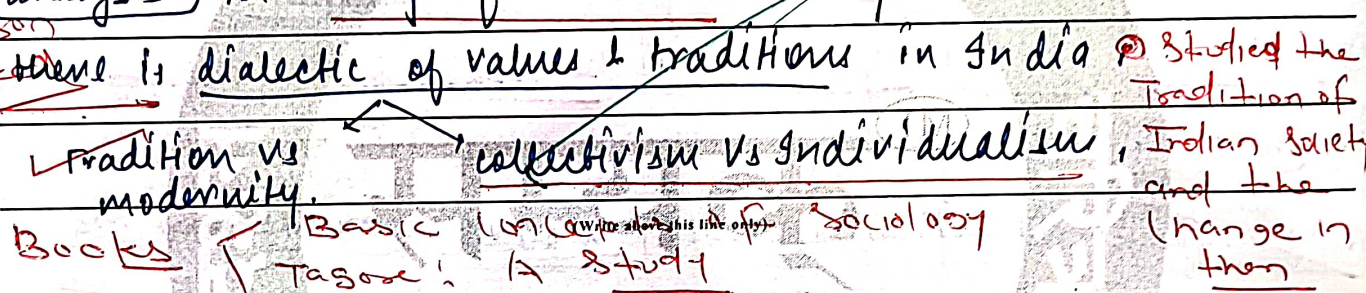 there is dialectic of values & traditions in India
Tradition vs collectivism vs Individualism,
modernity.
Studied the
Tradition of
Indian Societ
and the
Change in
then
Books Basic Concepts of Sociology
(Write above this line only)
Tagore: A Study